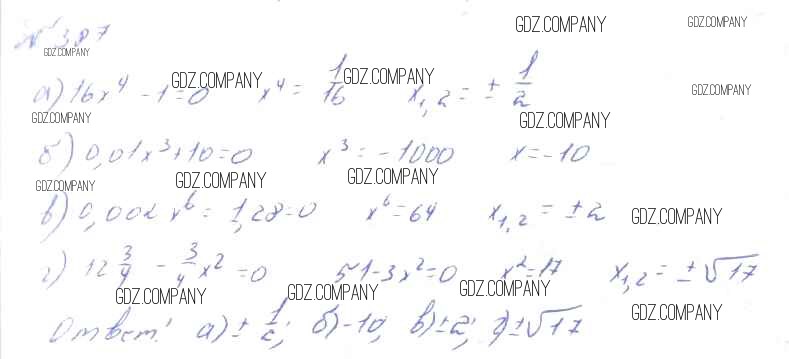 GDZ.COMPANY GDZ.COMPANY
№ 387
GDZ.COMPANY
а) 16x⁴ - 1 = 0 x⁴ = 1/16 x₁,₂ = ± 1/2
GDZ.COMPANY GDZ.COMPANY GDZ.COMPANY
GDZ.COMPANY GDZ.COMPANY
б) 0,01x³ + 10 = 0 x³ = -1000 x = -10
GDZ.COMPANY GDZ.COMPANY GDZ.COMPANY
в) 0,002x⁶ = 1,28 = 0 x⁶ = 64 x₁,₂ = ±2
GDZ.COMPANY
г) 12 3/4 - 3/4 x² = 0 51 - 3x² = 0 x² = 17 x₁,₂ = ±√17
GDZ.COMPANY GDZ.COMPANY GDZ.COMPANY
GDZ.COMPANY
Ответ: а) ± 1/2; б) -10; в) ±2; г) ±√17